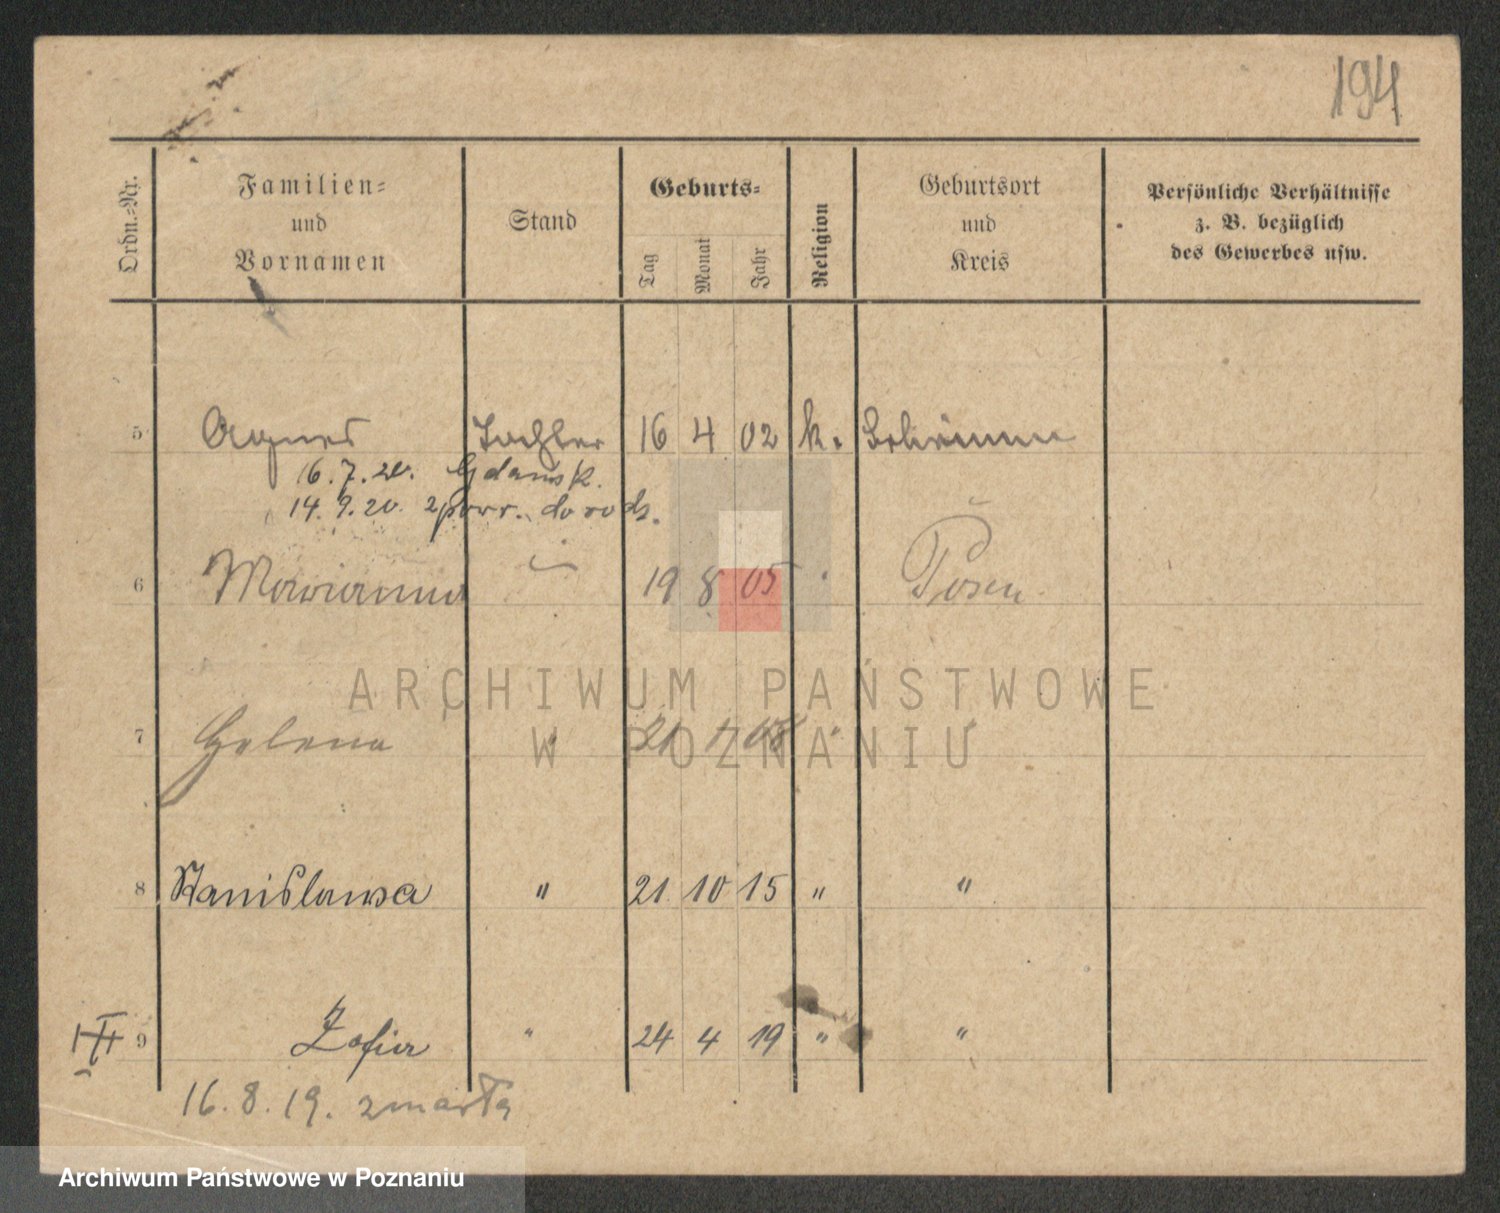 194
Ordn.-Nr.
Familien-
und
Vornamen
Stand
Geburts-
Tag
Monat
Jahr
Religion
Geburtsort
und
Kreis
Persönliche Verhältnisse
z. B. bezüglich
des Gewerbes usw.
5 Agnes Tochter 16 4 02 k. Schrimm
16.7.20. Gdańsk.
14.9.20. zpowr. do rodz.
6 Marianna 19 8 05 Posen
7 Helena " 21 1 08 " "
8 Stanislawa " 21 10 15 " "
9 Zofia " 24 4 19 " "
16.8.19. zmarła
ARCHIWUM PAŃSTWOWE
W POZNANIU
Archiwum Państwowe w Poznaniu